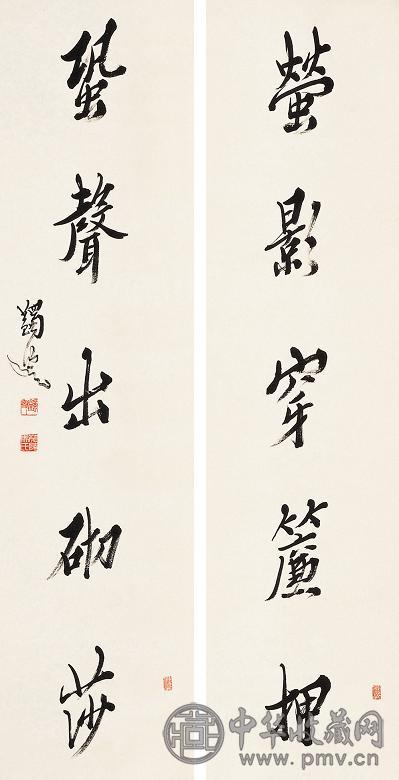 螢影穿簾押
蛩聲出砌莎
蠲叟
中华收藏网
www.pmv.cn